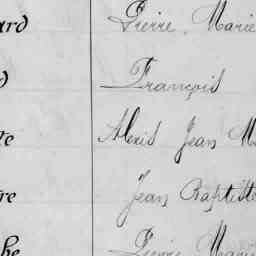 ard Pierre Marie
François
te Alexis Jean M
re Jean Baptiste
he Pierre Marie